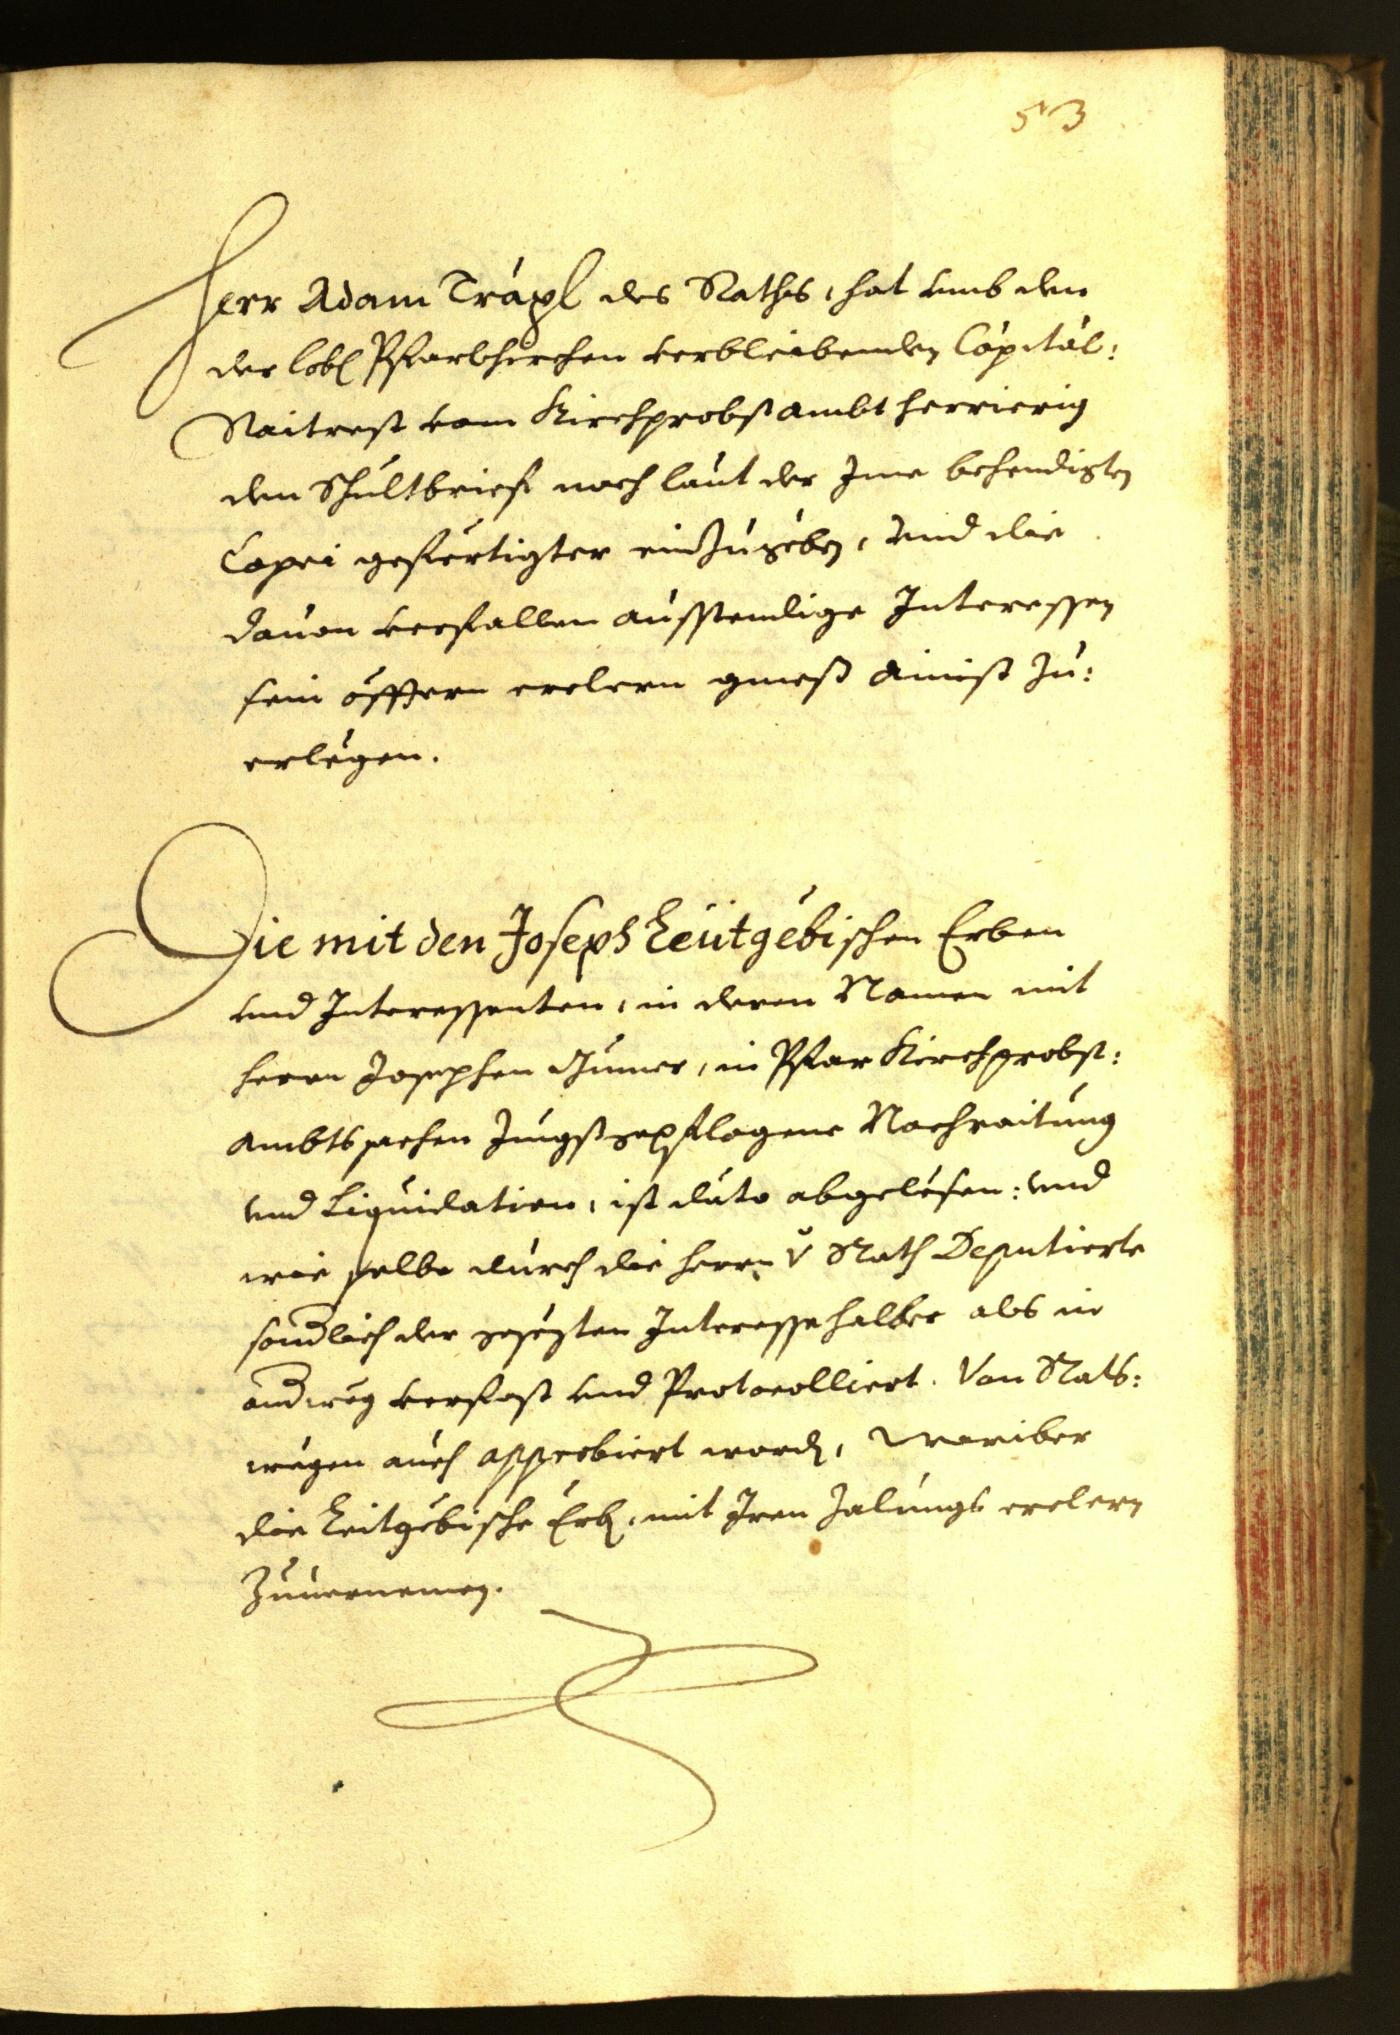 53
Herr Adam Träpl des Raths, hat umb den
der Lobl Pfarkhirchen verbleibenden Capital:
Raitrest vom Kirchprobstambt herrierig
den Schultbrief nach laut der Ime behendigten
Copei gefertigter einzugeben, Und die
dauon verfallen ausstendige Interessen
sein öfftern erclern gmeß ainist zu:
erlegen.
Die mit den Joseph Leütgebischen Erben
und Interessenten, in deren Namen mit
herrn Josephen Gumer, in Pfar Kirchprobst:
ambts sachen Jungst gepflogene Nachraitung
und Liquidation, ist dato abgelesen: und
wie selbe durch die herrn v Rath Deputierte
sondlich der gesezten Interesse halber als in
andweg verfast und Protocolliert. Von Rats:
wegen auch approbiert word, Wariber
die Leitgebische Erb, mit Iren Zalungs erclern
Zuuernemen.